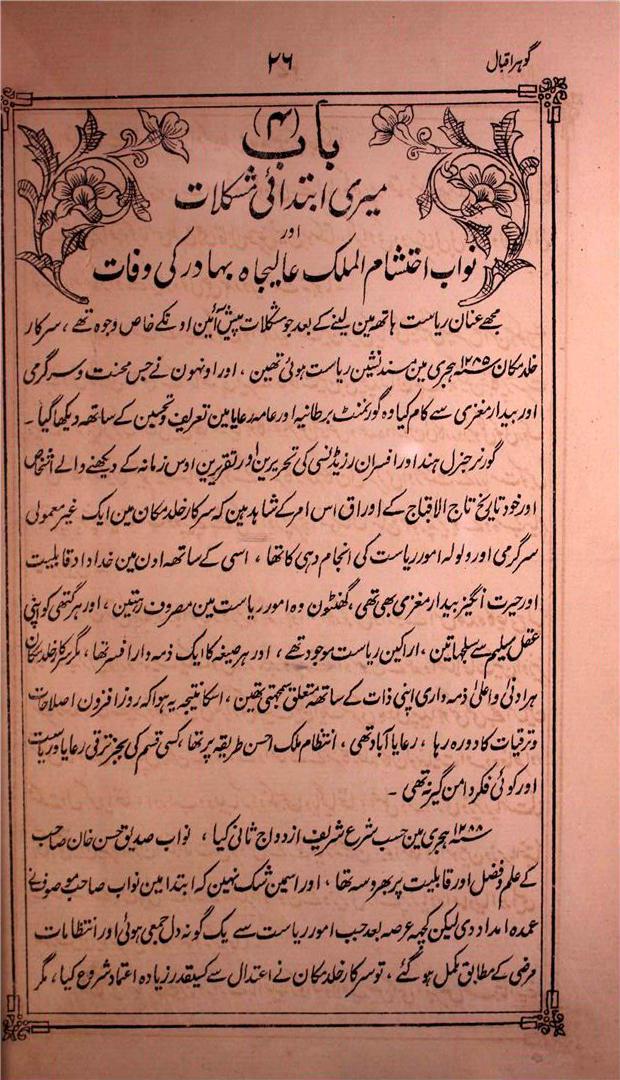 گوہر اقبال
۲۶
باب (۴)
میری ابتدائی مشکلات
اور
نواب احتشام الملک عالیجاہ بہادر کی وفات
مجھے عنان ریاست ہاتھ مین لینے کے بعد جو مشکلات پیش آئین اونکے خاص وجوہ تھے، سرکار
خلد مکان ۱۲۸۵ ہجری مین مسند نشین ریاست ہوئی تھین، اور اونہون نے جس محنت و سرگرمی
اور بیدار مغزی سے کام کیا وہ گورنمنٹ برطانیہ اور عامہ رعایا مین تعریف و تحسین کے ساتھ دیکھا گیا۔
گورنر جنرل ہند اور افسران رزیڈنسی کی تحریرین اور تقریرین اوس زمانہ کے دیکھنے والے اشخاص
اور خود تاریخ تاج الاقبال کے اوراق اس امر کے شاہد ہین کہ سرکار خلد مکان مین ایک غیر معمولی
سرگرمی اور ولولہ امور ریاست کی انجام دہی کا تھا، اسی کے ساتھ اون مین خداداد قابلیت
اور حیرت انگیز بیدار مغزی بھی تھی، گھنٹون وہ امور ریاست مین مصروف رہتین، اور ہر گتھی کو اپنی
عقل سلیم سے سلجھاتین، اراکین ریاست موجود تھے، اور ہر صیغہ کا ایک ذمہ دار افسر تھا، مگر سرکار خلد مکان
ہر ادنیٰ و اعلیٰ ذمہ داری اپنی ذات کے ساتھ متعلق سمجھتی تھین، اسکا نتیجہ یہ ہوا کہ روز افزون اصلاحات
و ترقیات کا دورہ رہا، رعایا آباد تھی، انتظام ملک احسن طریقہ پر تھا، کسی قسم کی بجز ترقی رعایا و ریاست
اور کوئی فکر دامن گیر نہ تھی۔
۱۲۸۸ ہجری مین حسب شرع شریف ازدواج ثانی کیا، نواب صدیق حسن خان صاحب
کے علم و فضل اور قابلیت پر بھروسہ تھا، اور اسمین شک نہین کہ ابتدا مین نواب صاحب موصوف نے
عمدہ امداد دی لیکن کچھ عرصہ بعد جب امور ریاست سے یک گونہ دل جمعی ہوئی اور انتظامات
مرضی کے مطابق مکمل ہو گئے، تو سرکار خلد مکان نے اعتدال سے کسیقدر زیادہ اعتماد شروع کیا، مگر